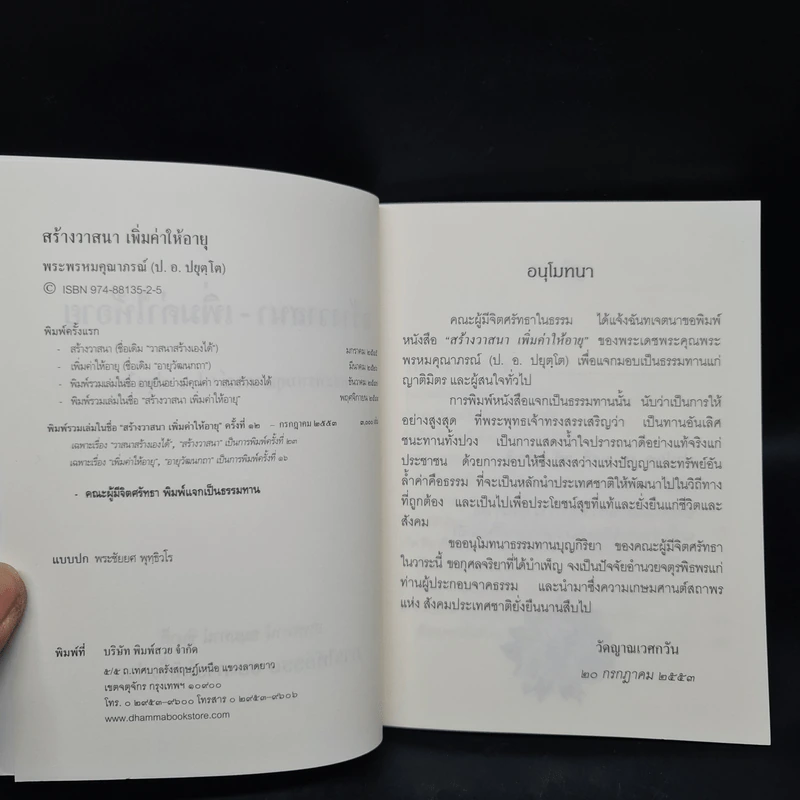 สร้างวาสนา เพิ่มค่าให้อายุ
พระพรหมคุณาภรณ์ (ป. อ. ปยุตฺโต)
© ISBN 974-88135-2-5
พิมพ์ครั้งแรก
- สร้างวาสนา (ชื่อเดิม "วาสนาสร้างเองได้") มกราคม
- เพิ่มค่าให้อายุ (ชื่อเดิม "อายุวัฒนกถา") มีนาคม
- พิมพ์รวมเล่มในชื่อ อายุยืนอย่างมีคุณค่า วาสนาสร้างเองได้ ธันวาคม
- พิมพ์รวมเล่มในชื่อ "สร้างวาสนา เพิ่มค่าให้อายุ" พฤศจิกายน
พิมพ์รวมเล่มในชื่อ "สร้างวาสนา เพิ่มค่าให้อายุ" ครั้งที่ ๑๒ – กรกฎาคม ๒๕๕๓
เฉพาะเรื่อง "วาสนาสร้างเองได้", "สร้างวาสนา" เป็นการพิมพ์ครั้งที่ ๒๓
เฉพาะเรื่อง "เพิ่มค่าให้อายุ", "อายุวัฒนกถา" เป็นการพิมพ์ครั้งที่ ๑๖
- คณะผู้มีจิตศรัทธา พิมพ์แจกเป็นธรรมทาน
แบบปก พระชัยยศ พุทฺธิวโร
พิมพ์ที่ บริษัท พิมพ์สวย จำกัด
๕/๕ ถ.เทศบาลรังสฤษฏ์เหนือ แขวงลาดยาว
เขตจตุจักร กรุงเทพฯ ๑๐๙๐๐
โทร. ๐ ๒๙๕๓-๙๖๐๐ โทรสาร ๐ ๒๙๕๓-๙๖๐๖
www.dhammabookstore.com
อนุโมทนา
คณะผู้มีจิตศรัทธาในธรรม ได้แจ้งฉันทเจตนาขอพิมพ์
หนังสือ "สร้างวาสนา เพิ่มค่าให้อายุ" ของพระเดชพระคุณพระ
พรหมคุณาภรณ์ (ป. อ. ปยุตฺโต) เพื่อแจกมอบเป็นธรรมทานแก่
ญาติมิตร และผู้สนใจทั่วไป
การพิมพ์หนังสือแจกเป็นธรรมทานนั้น นับว่าเป็นการให้
อย่างสูงสุด ที่พระพุทธเจ้าทรงสรรเสริญว่า เป็นทานอันเลิศ
ชนะทานทั้งปวง เป็นการแสดงน้ำใจปรารถนาดีอย่างแท้จริงแก่
ประชาชน ด้วยการมอบให้ซึ่งแสงสว่างแห่งปัญญาและทรัพย์อัน
ล้ำค่าคือธรรม ที่จะเป็นหลักนำประเทศชาติให้พัฒนาไปในวิถีทาง
ที่ถูกต้อง และเป็นไปเพื่อประโยชน์สุขที่แท้และยั่งยืนแก่ชีวิตและ
สังคม
ขออนุโมทนาธรรมทานบุญกิริยา ของคณะผู้มีจิตศรัทธา
ในวาระนี้ ขอกุศลจริยาที่ได้บำเพ็ญ จงเป็นปัจจัยอำนวยจตุรพิธพรแก่
ท่านผู้ประกอบจาคธรรม และนำมาซึ่งความเกษมศานต์สถาพร
แห่ง สังคมประเทศชาติยั่งยืนนานสืบไป
วัดญาณเวศกวัน
๒๐ กรกฎาคม ๒๕๕๓